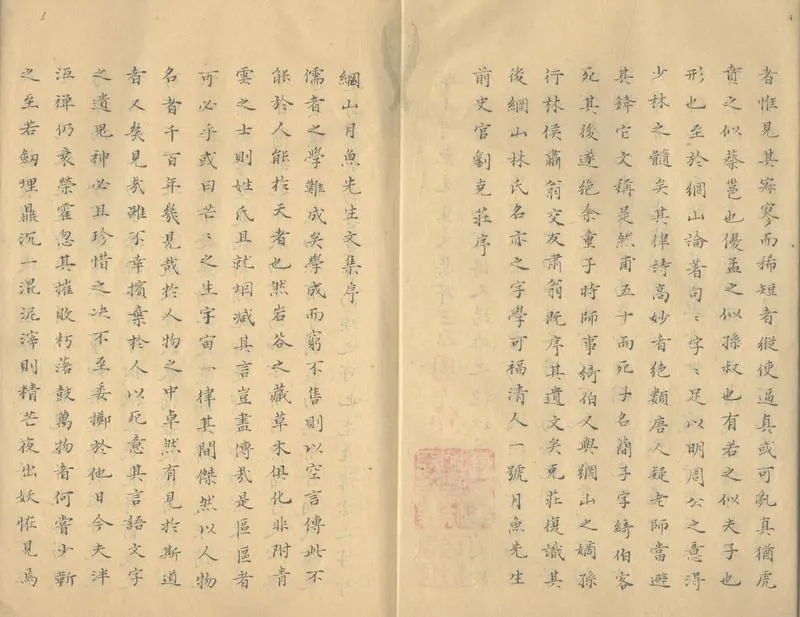 者惟見其寂寥而稀短者縱使逼真或可亂真猶虎
賁之似蔡邕也優孟之似孫叔也有若之似夫子也
形也至於網山論著句〻字〻足以明周公之意得
少林之髓矣其律詩高妙者絕類唐人疑老師當避
其鋒它文稱是然甫五十而死子名簡子字綺伯客
死其後遂絕余童子時師事綺伯又與網山之嫡孫
行林侯肅翁交友肅翁既序其遺文矣克莊復識其
後網山林氏名亦之字學可福清人一號月魚先生
前史官劉克莊序
網山月魚先生文集序
儒者之學難成矣學成而窮不售則以空言傳此不
能於人能於天者也然若谷之藏草木俱化非附青
雲之士則姓氏且就堙滅其言豈盡傳哉是區區者
可必乎或曰芒〻之生宇宙一律其間傑然以人物
名者千百年幾見哉於人物之中卓然有見於斯道
者又幾見哉雖不幸擯棄於人以死意其言語文字
之遺鬼神必且珍惜之决不至委擲於他日今夫泮
洹禪仍衰榮霍忽其摧敗朽落鼓萬物者何嘗少靳
之至若劒埋鼎沉一混泥滓則精芒夜出妖恠見焉